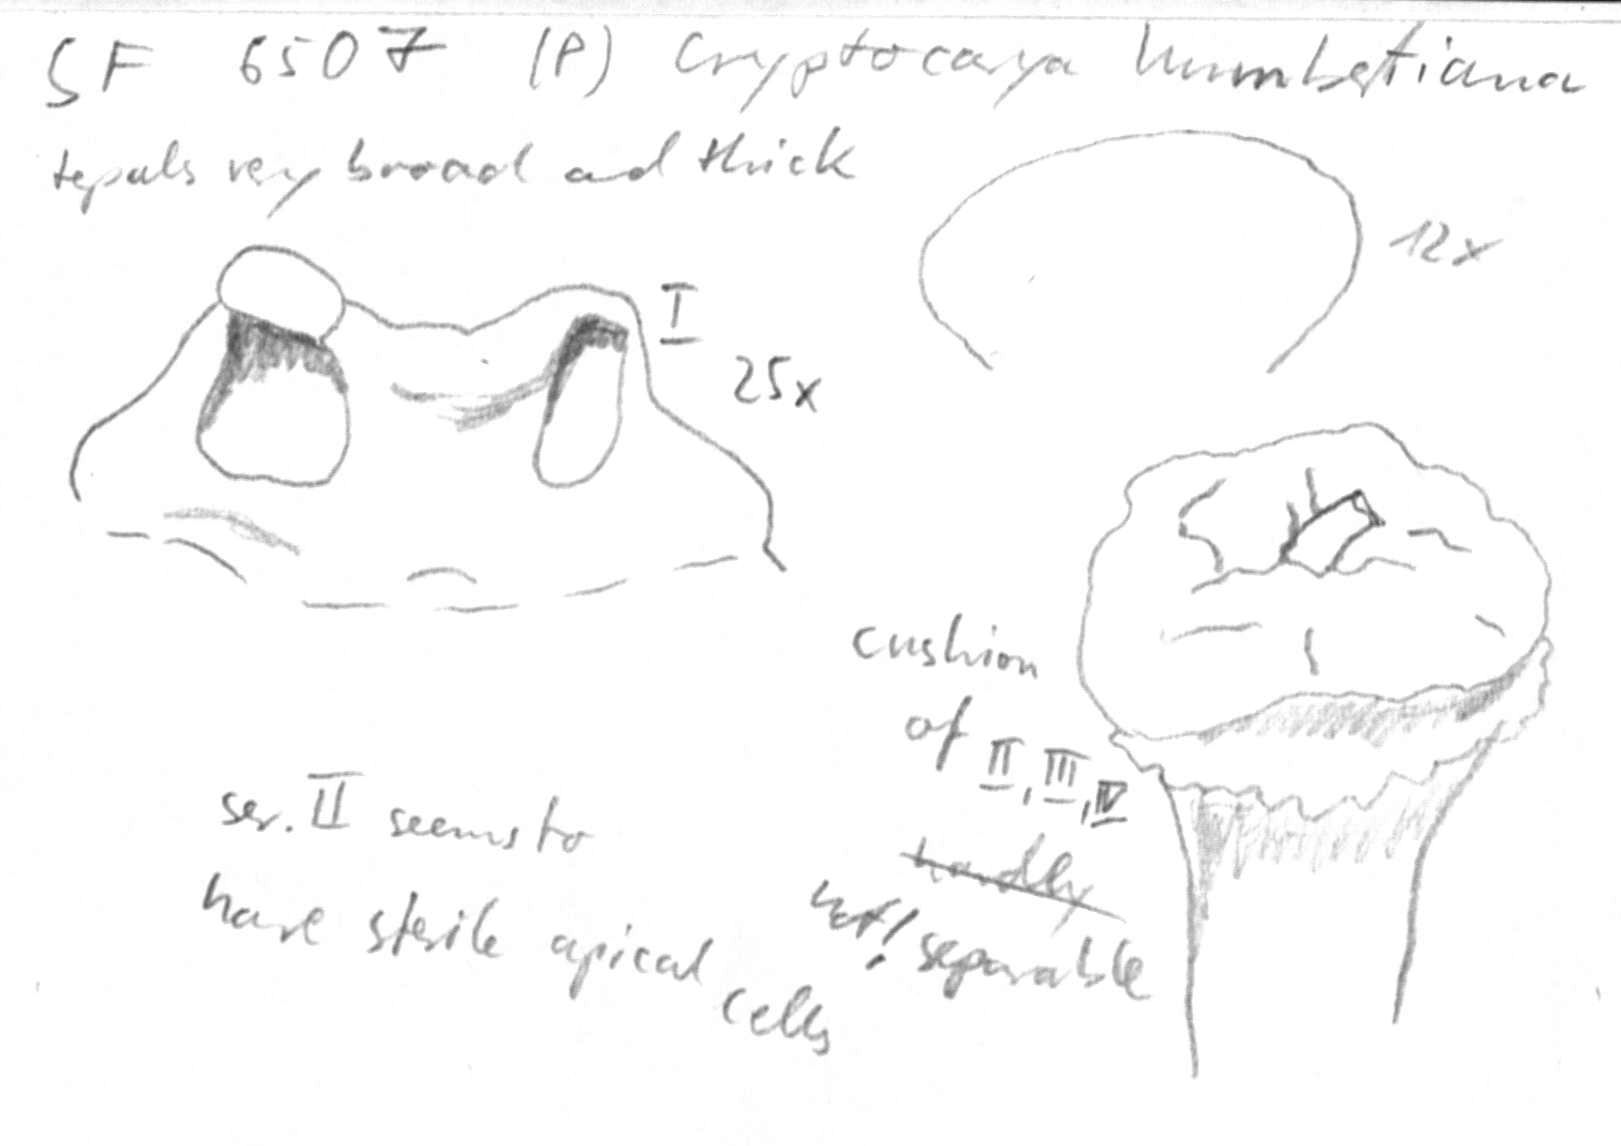 SF 6507 (P) Cryptocarya humbertiana
tepals very broad and thick
12x
I
25x
cushion
of II, III, IV
hardly
not! separable
ser. II seems to
have sterile apical
cells